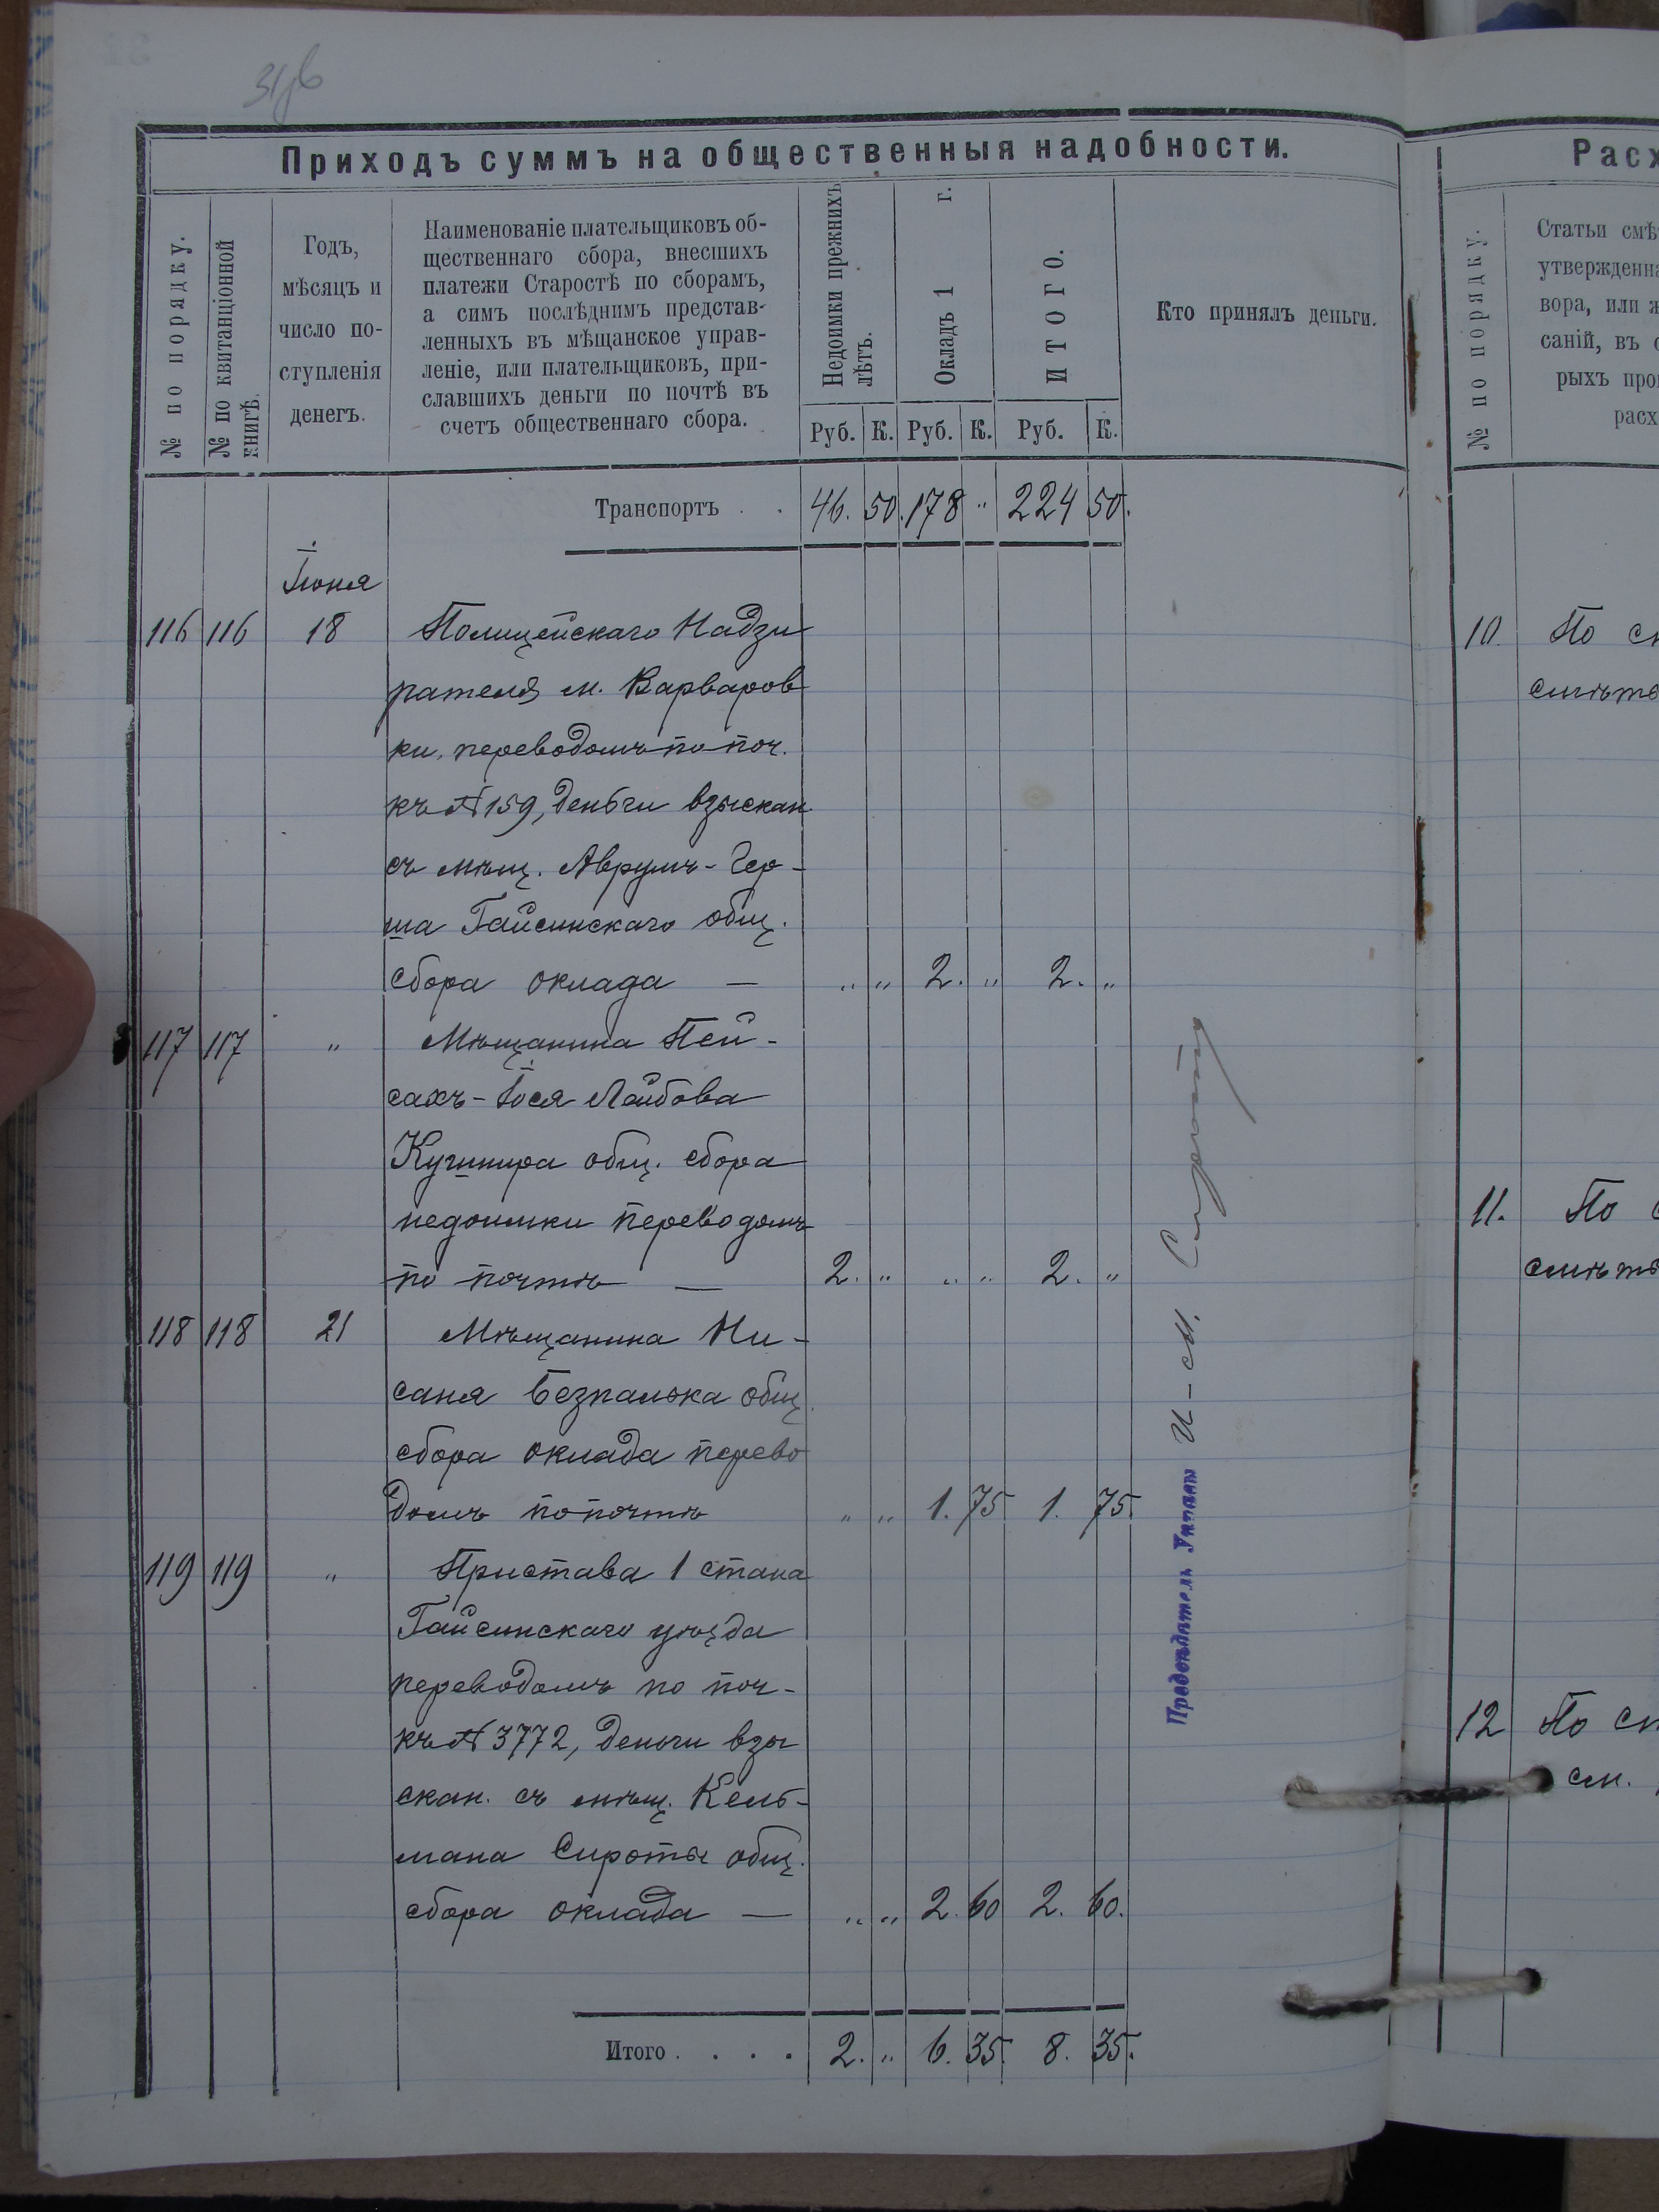 31об
Приходъ суммъ на общественныя надобности.
№ по порядку.
№ по квитанціонной
книгѣ.
Годъ,
мѣсяцъ и
число по-
ступленія
денегъ.
Наименованіе плательщиковъ об-
щественнаго сбора, внесшихъ
платежи Старостѣ по сборамъ,
а симъ послѣднимъ представ-
ленныхъ въ мѣщанское управ-
леніе, или плательщиковъ, при-
славшихъ деньги по почтѣ въ
счетъ общественнаго сбора.
Недоимки прежнихъ
лѣтъ.
Окладъ 1 г.
ИТОГО.
Кто принялъ деньги.
Руб. К. Руб. К. Руб. К.
Транспортъ . . 46. 50. 178 " 224 50.
Іюня
116 116 18 Полицейскаго Надзи
рателя м. Варваров
ки, переводомъ по поч.
къ № 159, деньги взыскан.
съ мѣщ. Аврумъ-Гер-
ша Гайсинскаго общ.
сбора оклада — " " 2. " 2. "
117 117 " Мѣщанина Пей-
сахъ-Іося Лейбова
Кушнира общ. сбора
недоимки переводомъ
по почтѣ — 2. " " " 2. "
118 118 21 Мѣщанина Ни-
саня Безпалька общ.
сбора оклада перево
домъ по почтѣ " " 1. 75 1. 75.
119 119 " Пристава 1 стана
Гайсинскаго уѣзда
переводомъ по поч-
къ № 3772, деньги взы
скан. съ мѣщ. Кель-
мана Сироты общ.
сбора оклада — " " 2. 60 2. 60.
Итого . . . . 2. " 6. 35. 8. 35.
Предсѣдатель Управы И-М.
Расх
№ по порядку.
Статьи смѣ
утвержденна
вора, или ж
саній, въ с
рыхъ про
расх
10. По см
смѣтѣ
11. По с
смѣтѣ
12 По см
см.